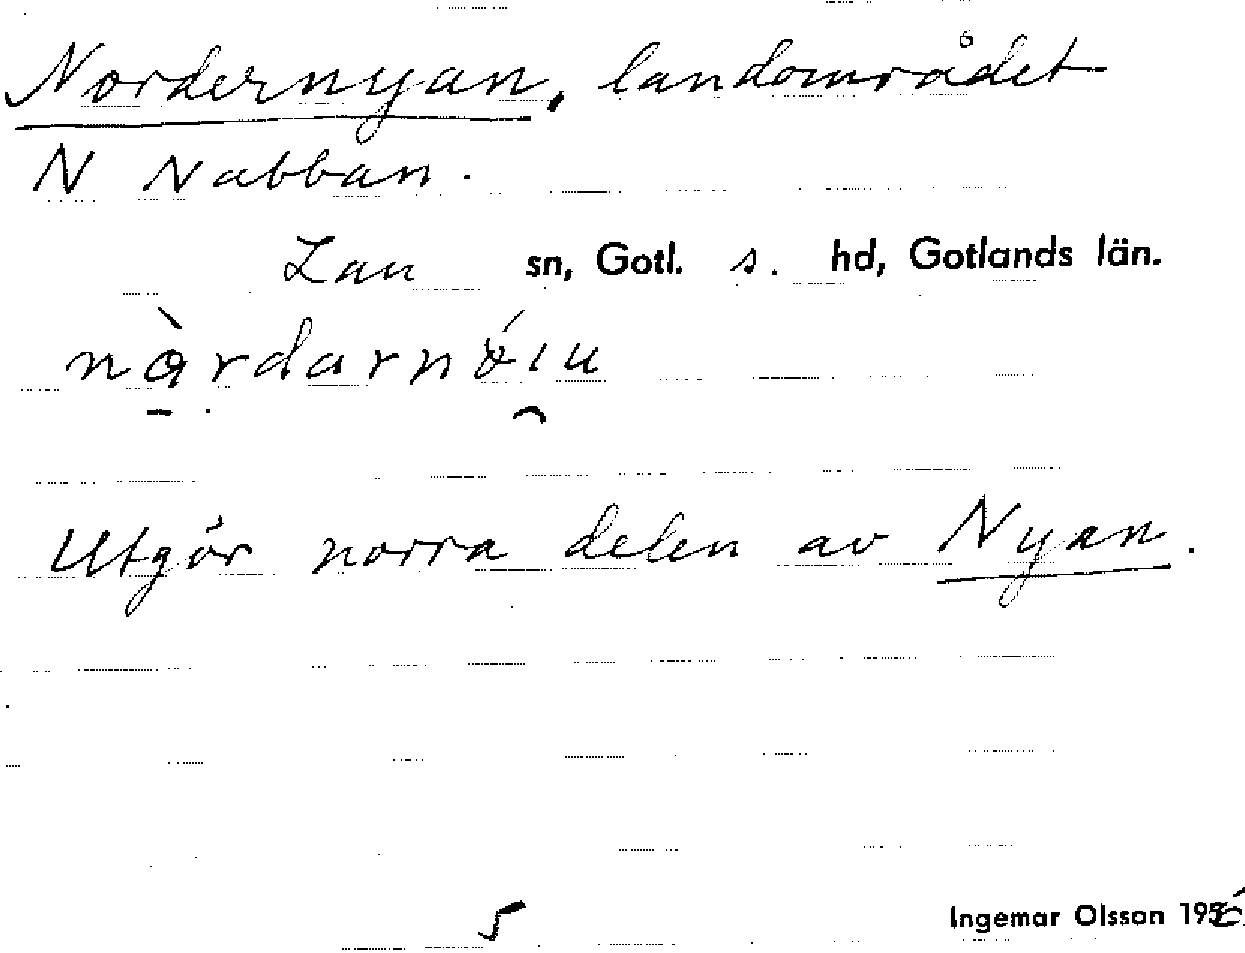 Nordernyan, landområdet
N Nabban.
Lau sn, Gotl. s. hd, Gotlands län.
Utgör norra delen av Nyan.
5 Ingemar Olsson